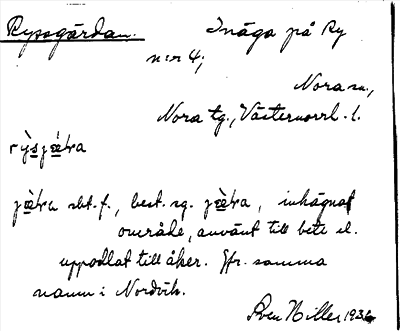 Ryssgärdan. Inäga på Ry
n:r 4;
Nora sn.,
Nora tg., Västernorrl. l.
rỳsjæ̀ra
jæ̀ra sbt. f., best. sg. jæ̀ra, inhägnat
område, använt till bete el.
uppodlat till åker. Jfr. samma
namn i Nordvik.
Sven Hiller 1936